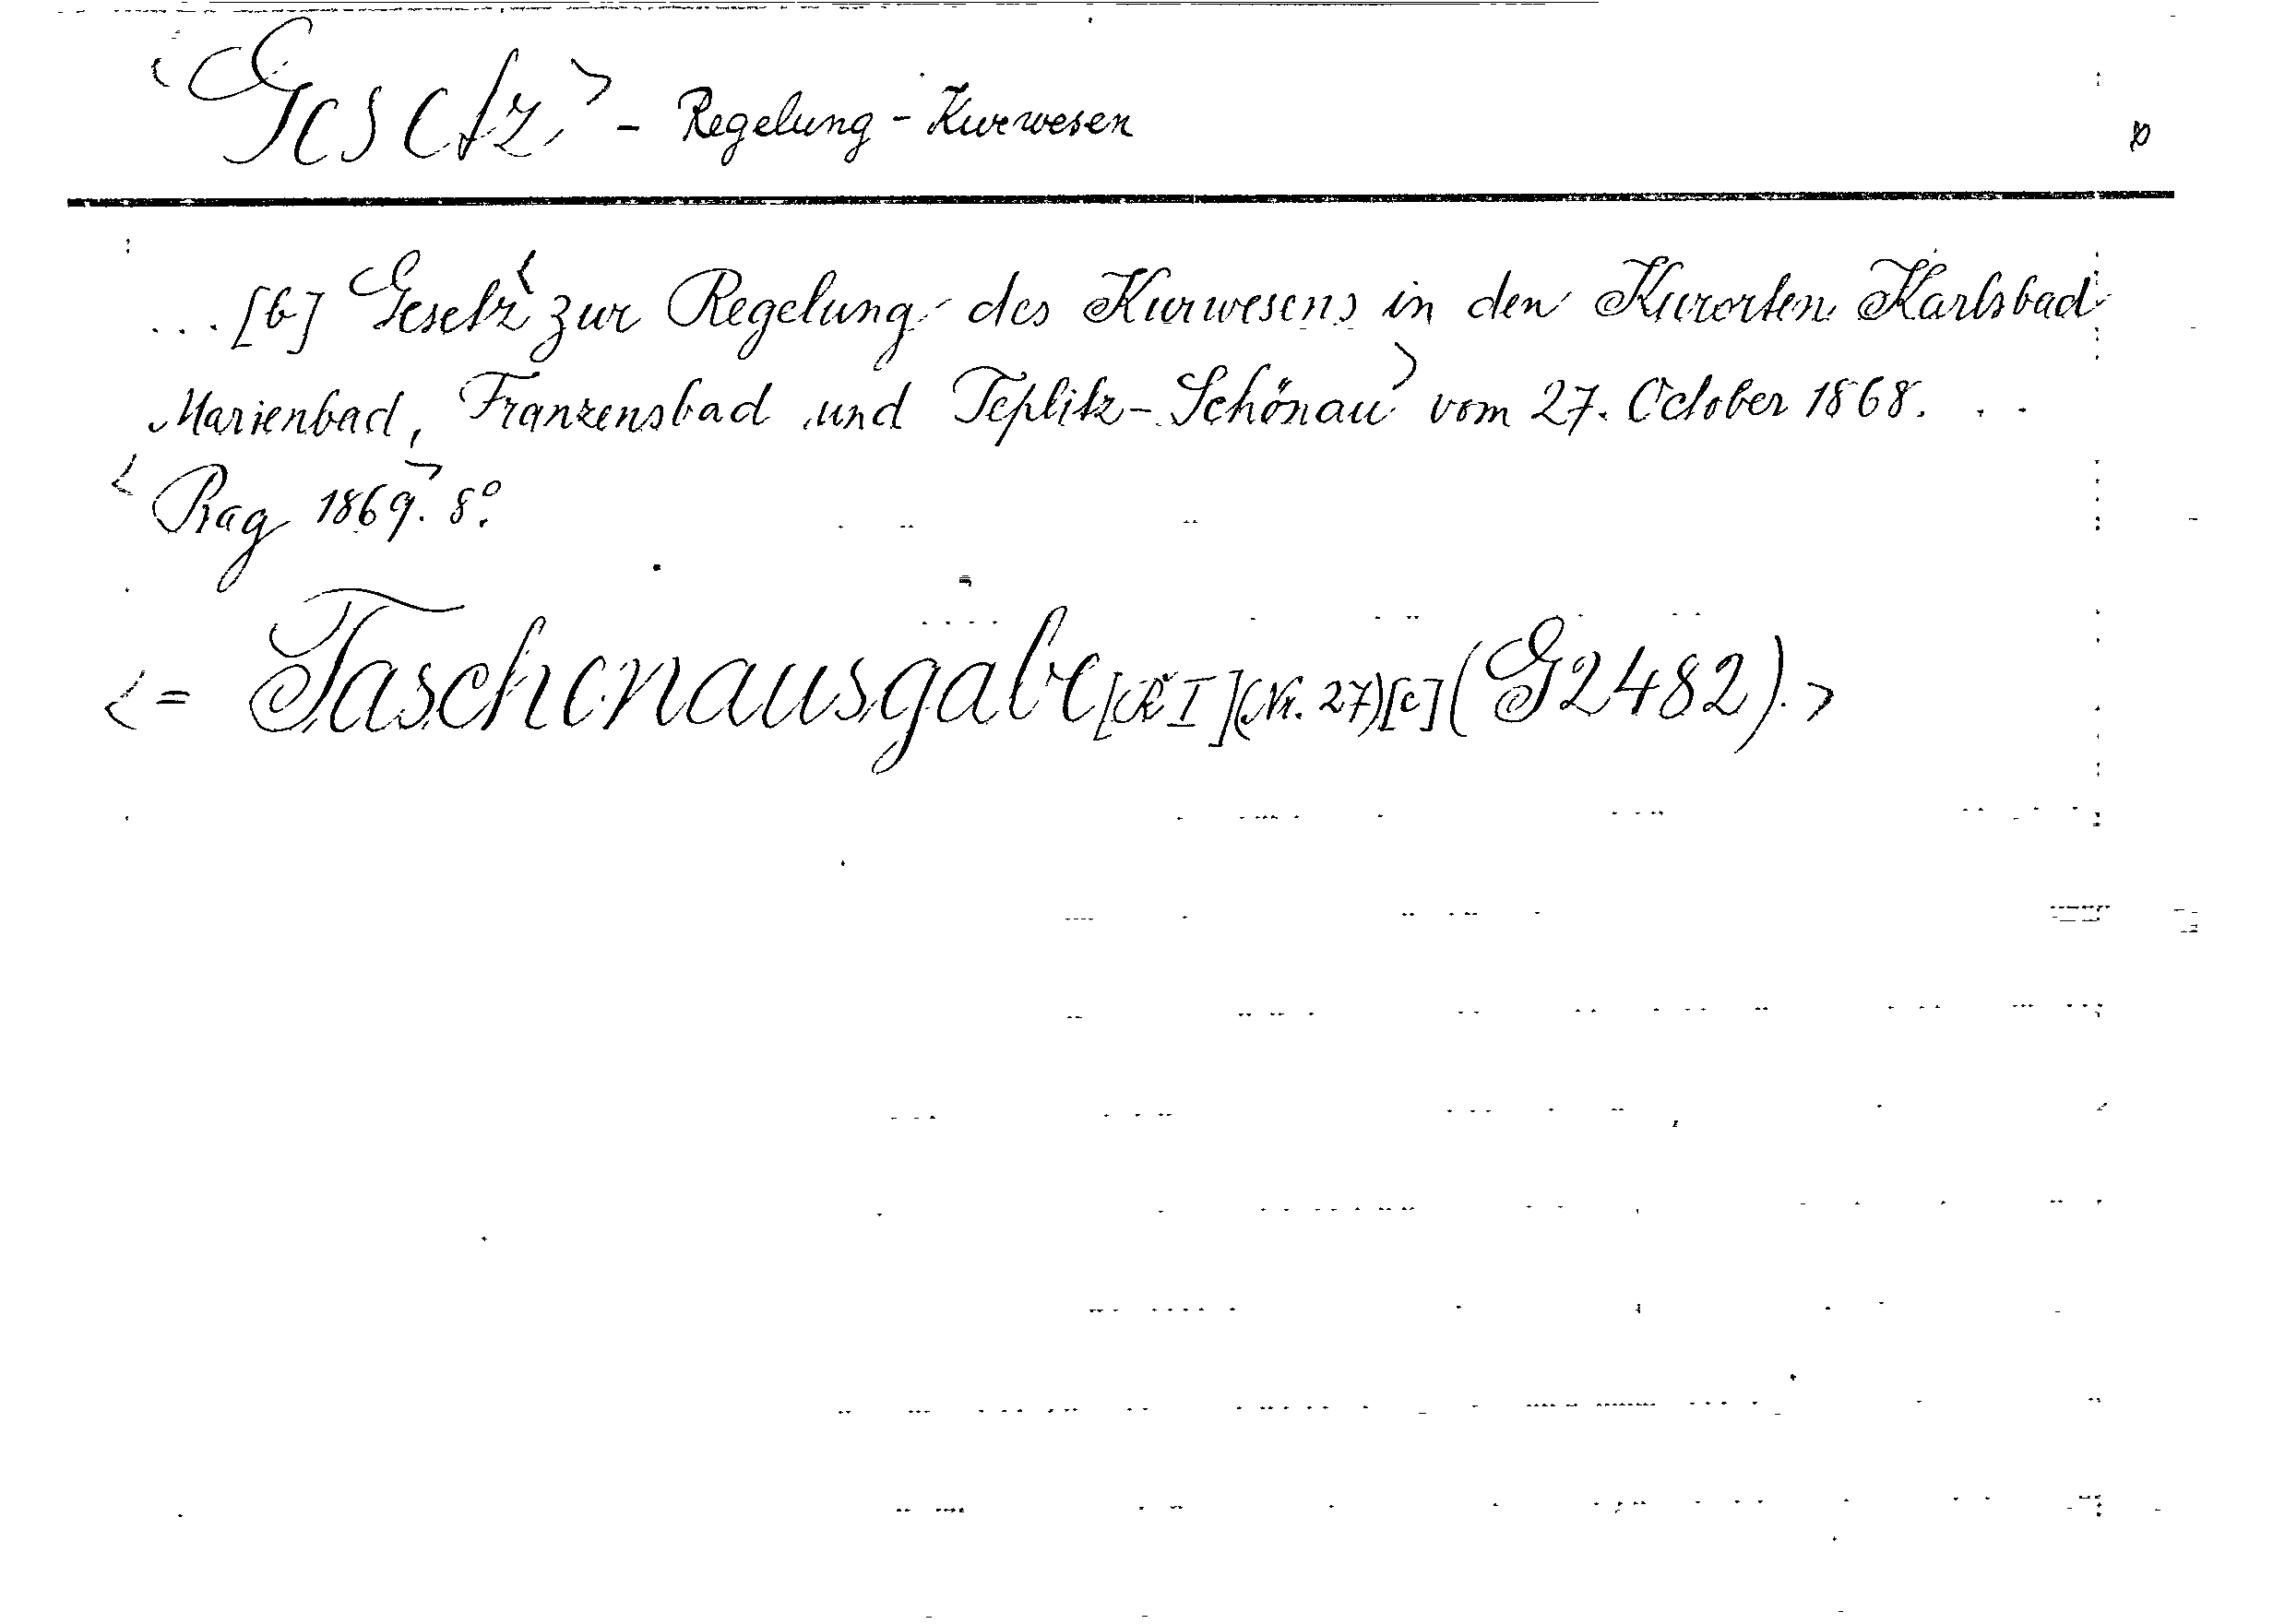 <Gesetz> - Regelung - Kurwesen
... [b] Gesetz < zur Regelung des Kurwesens in den Kurorten Karlsbad
Marienbad, Franzensbad und Teplitz-Schönau> vom 27. October 1868. . .
<Prag 1869>. 8º.
<= Taschenausgabe [R I] (Nr. 27) [c] (G2482).>